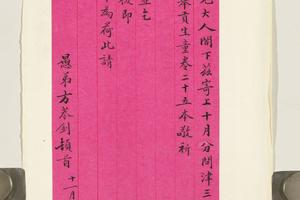 大人閣下茲寄上十月分問津三
舉貢生童卷二十五本敬祈
查
核即
為荷此請
愚弟方恭釗頓首 十一月